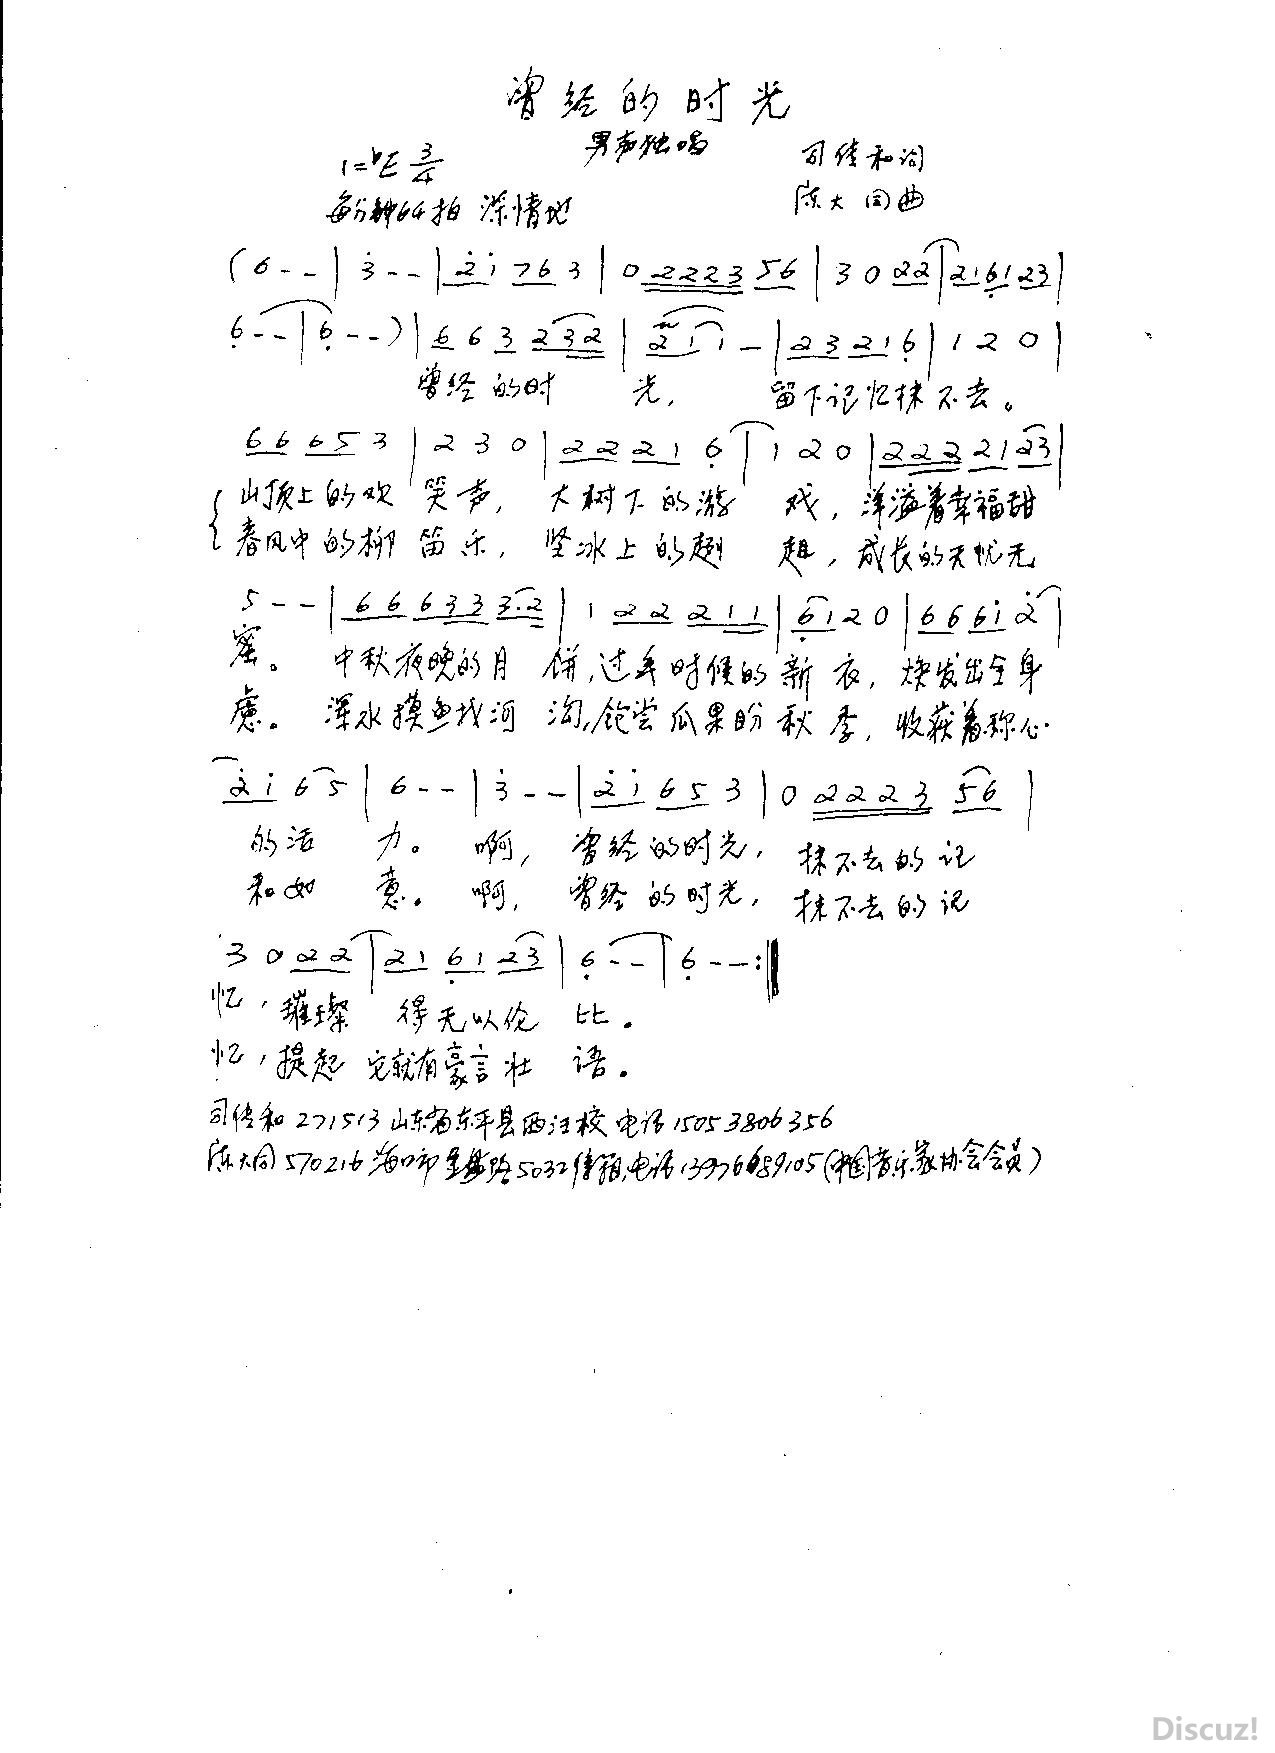 曾经的时光
男声独唱
1=♭E 3/4 司传和词
每分钟64拍 深情地 陈大同曲
( 6 - - | 3̇ - - | 2̇ 1̇ 7 6 3 | 0 2 2 2 3 5 6 | 3 0 2 2 | 2 1 6̣ 1 2 3 |
6̣ - - | 6̣ - - ) | 6 6 3 2 3 2 | 2 1 1 - | 2 3 2 1 6̣ | 1 2 0 |
曾经的时 光, 留下记忆抹不去。
6 6 6 5 3 | 2 3 0 | 2 2 2 1 6̣ | 1 2 0 | 2 2 2 2 1 2 3 |
山顶上的欢 笑声, 大树下的游 戏, 洋溢着幸福甜
春风中的柳 笛乐, 坚冰上的趔 趄, 成长的无忧无
5 - - | 6 6 6 3 3 3 · 2 | 1 2 2 2 1 1 | 6̣ 1 2 0 | 6 6 6 1̇ 2̇ |
蜜。 中秋夜晚的月 饼, 过年时候的新 衣, 焕发出全身
虑。 浑水摸鱼找河 沟, 饱尝瓜果盼秋 季, 收获着称心
2̇ 1̇ 6 5 | 6 - - | 3̇ - - | 2̇ 1̇ 6 5 3 | 0 2 2 2 3 5 6 |
的活 力。 啊, 曾经的时光, 抹不去的记
和如 意。 啊, 曾经的时光, 抹不去的记
3 0 2 2 | 2 1 6̣ 1 2 3 | 6̣ - - | 6̣ - - :‖
忆, 璀璨 得无以伦 比。
忆, 提起 它就有豪言壮 语。
司传和 271513 山东省东平县西汪校 电话 15053806356
陈大同 570216 海口市 路5032信箱, 电话 13976689105 (中国音乐家协会会员)
Discuz!